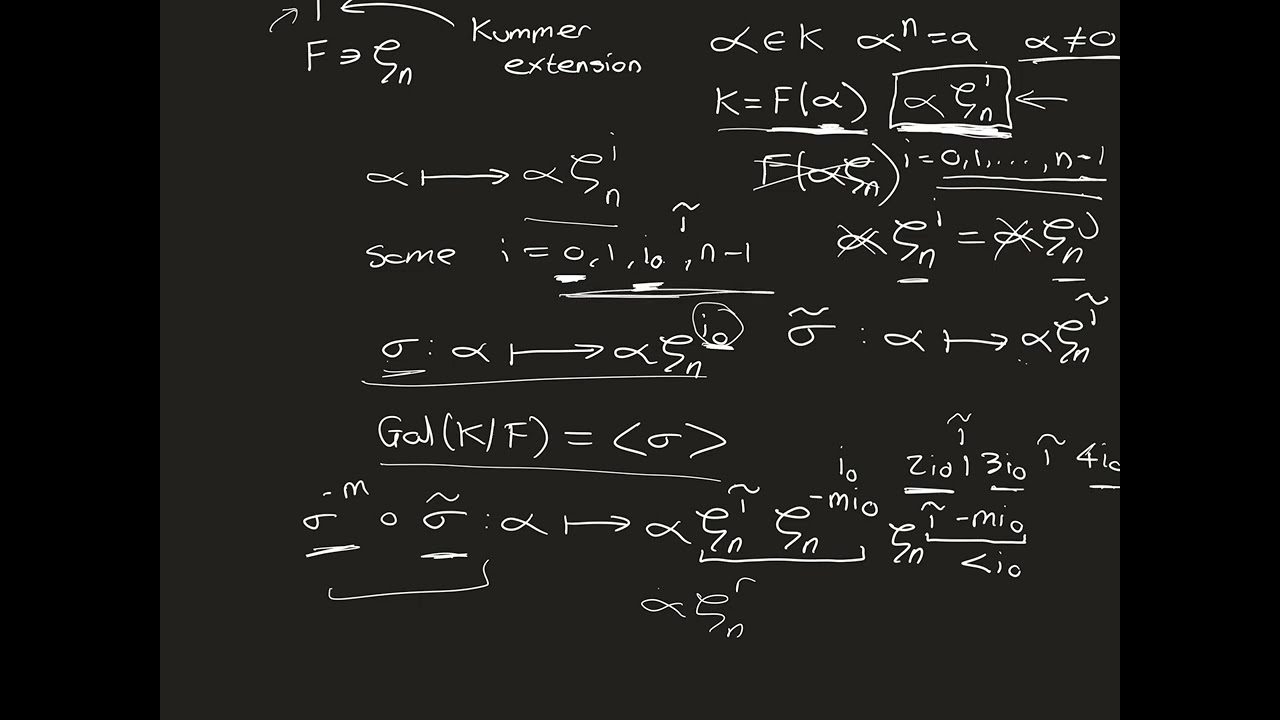 Kummer
extension
F ∋ ζₙ
α ∈ K αⁿ = a α ≠ 0
K = F(α) α ζₙⁱ ←
F(αζₙ) i = 0, 1, ..., n-1
α ⟼ α ζₙⁱ
ĩ
some i = 0, 1, i₀, n-1
α ζₙⁱ = α ζₙʲ
σ : α ⟼ α ζₙ^{i₀}
σ̃ : α ⟼ α ζₙ^{ĩ}
Gal(K/F) = <σ>
i₀ 2i₀ ĩ 3i₀ ĩ 4i₀
σ^{-m} ∘ σ̃ : α ⟼ α ζₙ^{ĩ} ζₙ^{-mi₀} ζₙ^{ĩ-mi₀}
< i₀
α ζₙʳ